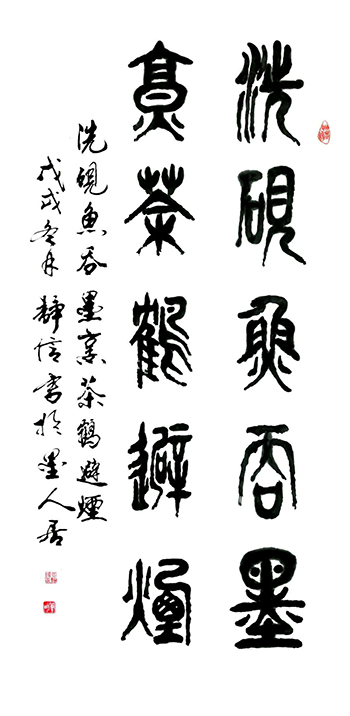 洗硯魚吞墨
烹茶鶴避煙
洗硯魚吞墨烹茶鶴避煙
戊戌冬月靜信書於墨人居